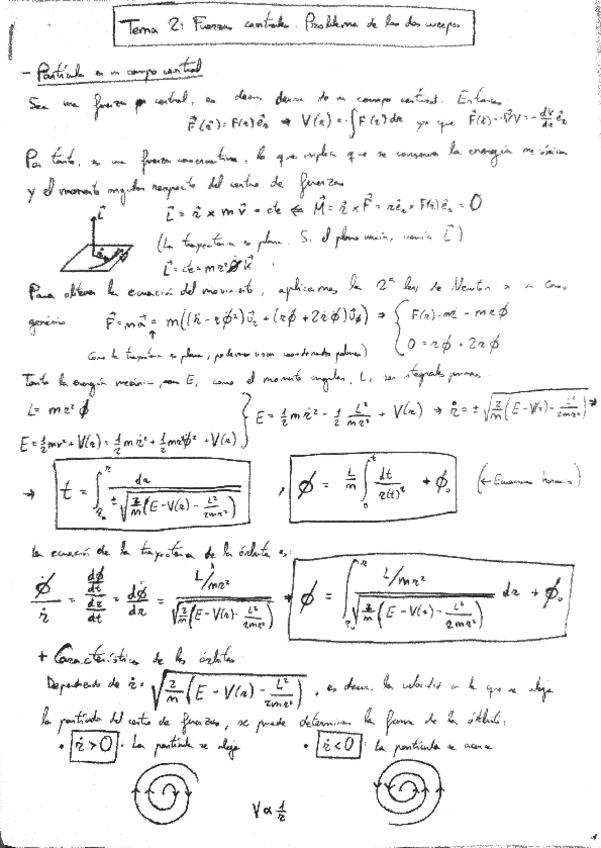 Tema 2: Fuerzas centrales. Problema de los dos cuerpos
- Partícula en un campo central
Sea una fuerza central, es decir, deriva de un campo central. Entonces
F⃗(r⃗) = F(r)ê_r ⇒ V(r) = -∫F(r)dr ya que F⃗(r) = -∇⃗V = -dV/dr ê_r
Por tanto, es una fuerza conservativa, lo que implica que se conserva la energía mecánica
y el momento angular respecto del centro de fuerzas
L⃗ = r⃗ × m v⃗ = cte ⇐ M⃗ = r⃗ × F⃗ = rê_r × F(r)ê_r = 0
L⃗
(La trayectoria es plana. Si el plano varía, varía L⃗)
L⃗ = cte = m r² φ̇ k⃗
Para obtener la ecuación del movimiento, aplicamos la 2ª ley de Newton a un caso
genérico F⃗ = m a⃗ = m((r̈ - rφ̇²)u⃗_r + (rφ̈ + 2ṙφ̇)u⃗_φ) ⇒ { F(r) = m r̈ - m r φ̇²
0 = rφ̈ + 2ṙφ̇
Como la trayectoria es plana, podemos usar coordenadas polares)
Tanto la energía mecánica, E, como el momento angular, L, son integrales primeras.
L = m r² φ̇
E = 1/2 m ṙ² + 1/2 L²/mr² + V(r) → ṙ = ± √(2/m (E - V(r) - L²/2mr²)) →
E = 1/2 mv² + V(r) = 1/2 m ṙ² + 1/2 m r² φ̇² + V(r)
→ t = ∫_{r₀}^{r} dr / ±√(2/m (E - V(r) - L²/2mr²)) , φ = L/m ∫_0^t dt/r(t)² + φ₀ (← Ecuación horaria)
La ecuación de la trayectoria de la órbita es:
φ̇/ṙ = (dφ/dt)/(dr/dt) = dφ/dr = (L/mr²)/√(2/m (E - V(r) - L²/2mr²)) → φ = ∫_{r₀}^{r} (L/mr²)/√(2/m (E - V(r) - L²/2mr²)) dr + φ₀
+ Características de las órbitas
Dependiendo de ṙ = √(2/m (E - V(r) - L²/2mr²)), es decir, la velocidad a la que se aleja
la partícula del centro de fuerzas, se puede determinar la forma de la órbita:
• ṙ > 0 : La partícula se aleja • ṙ < 0 : La partícula se acerca
V ∝ 1/r